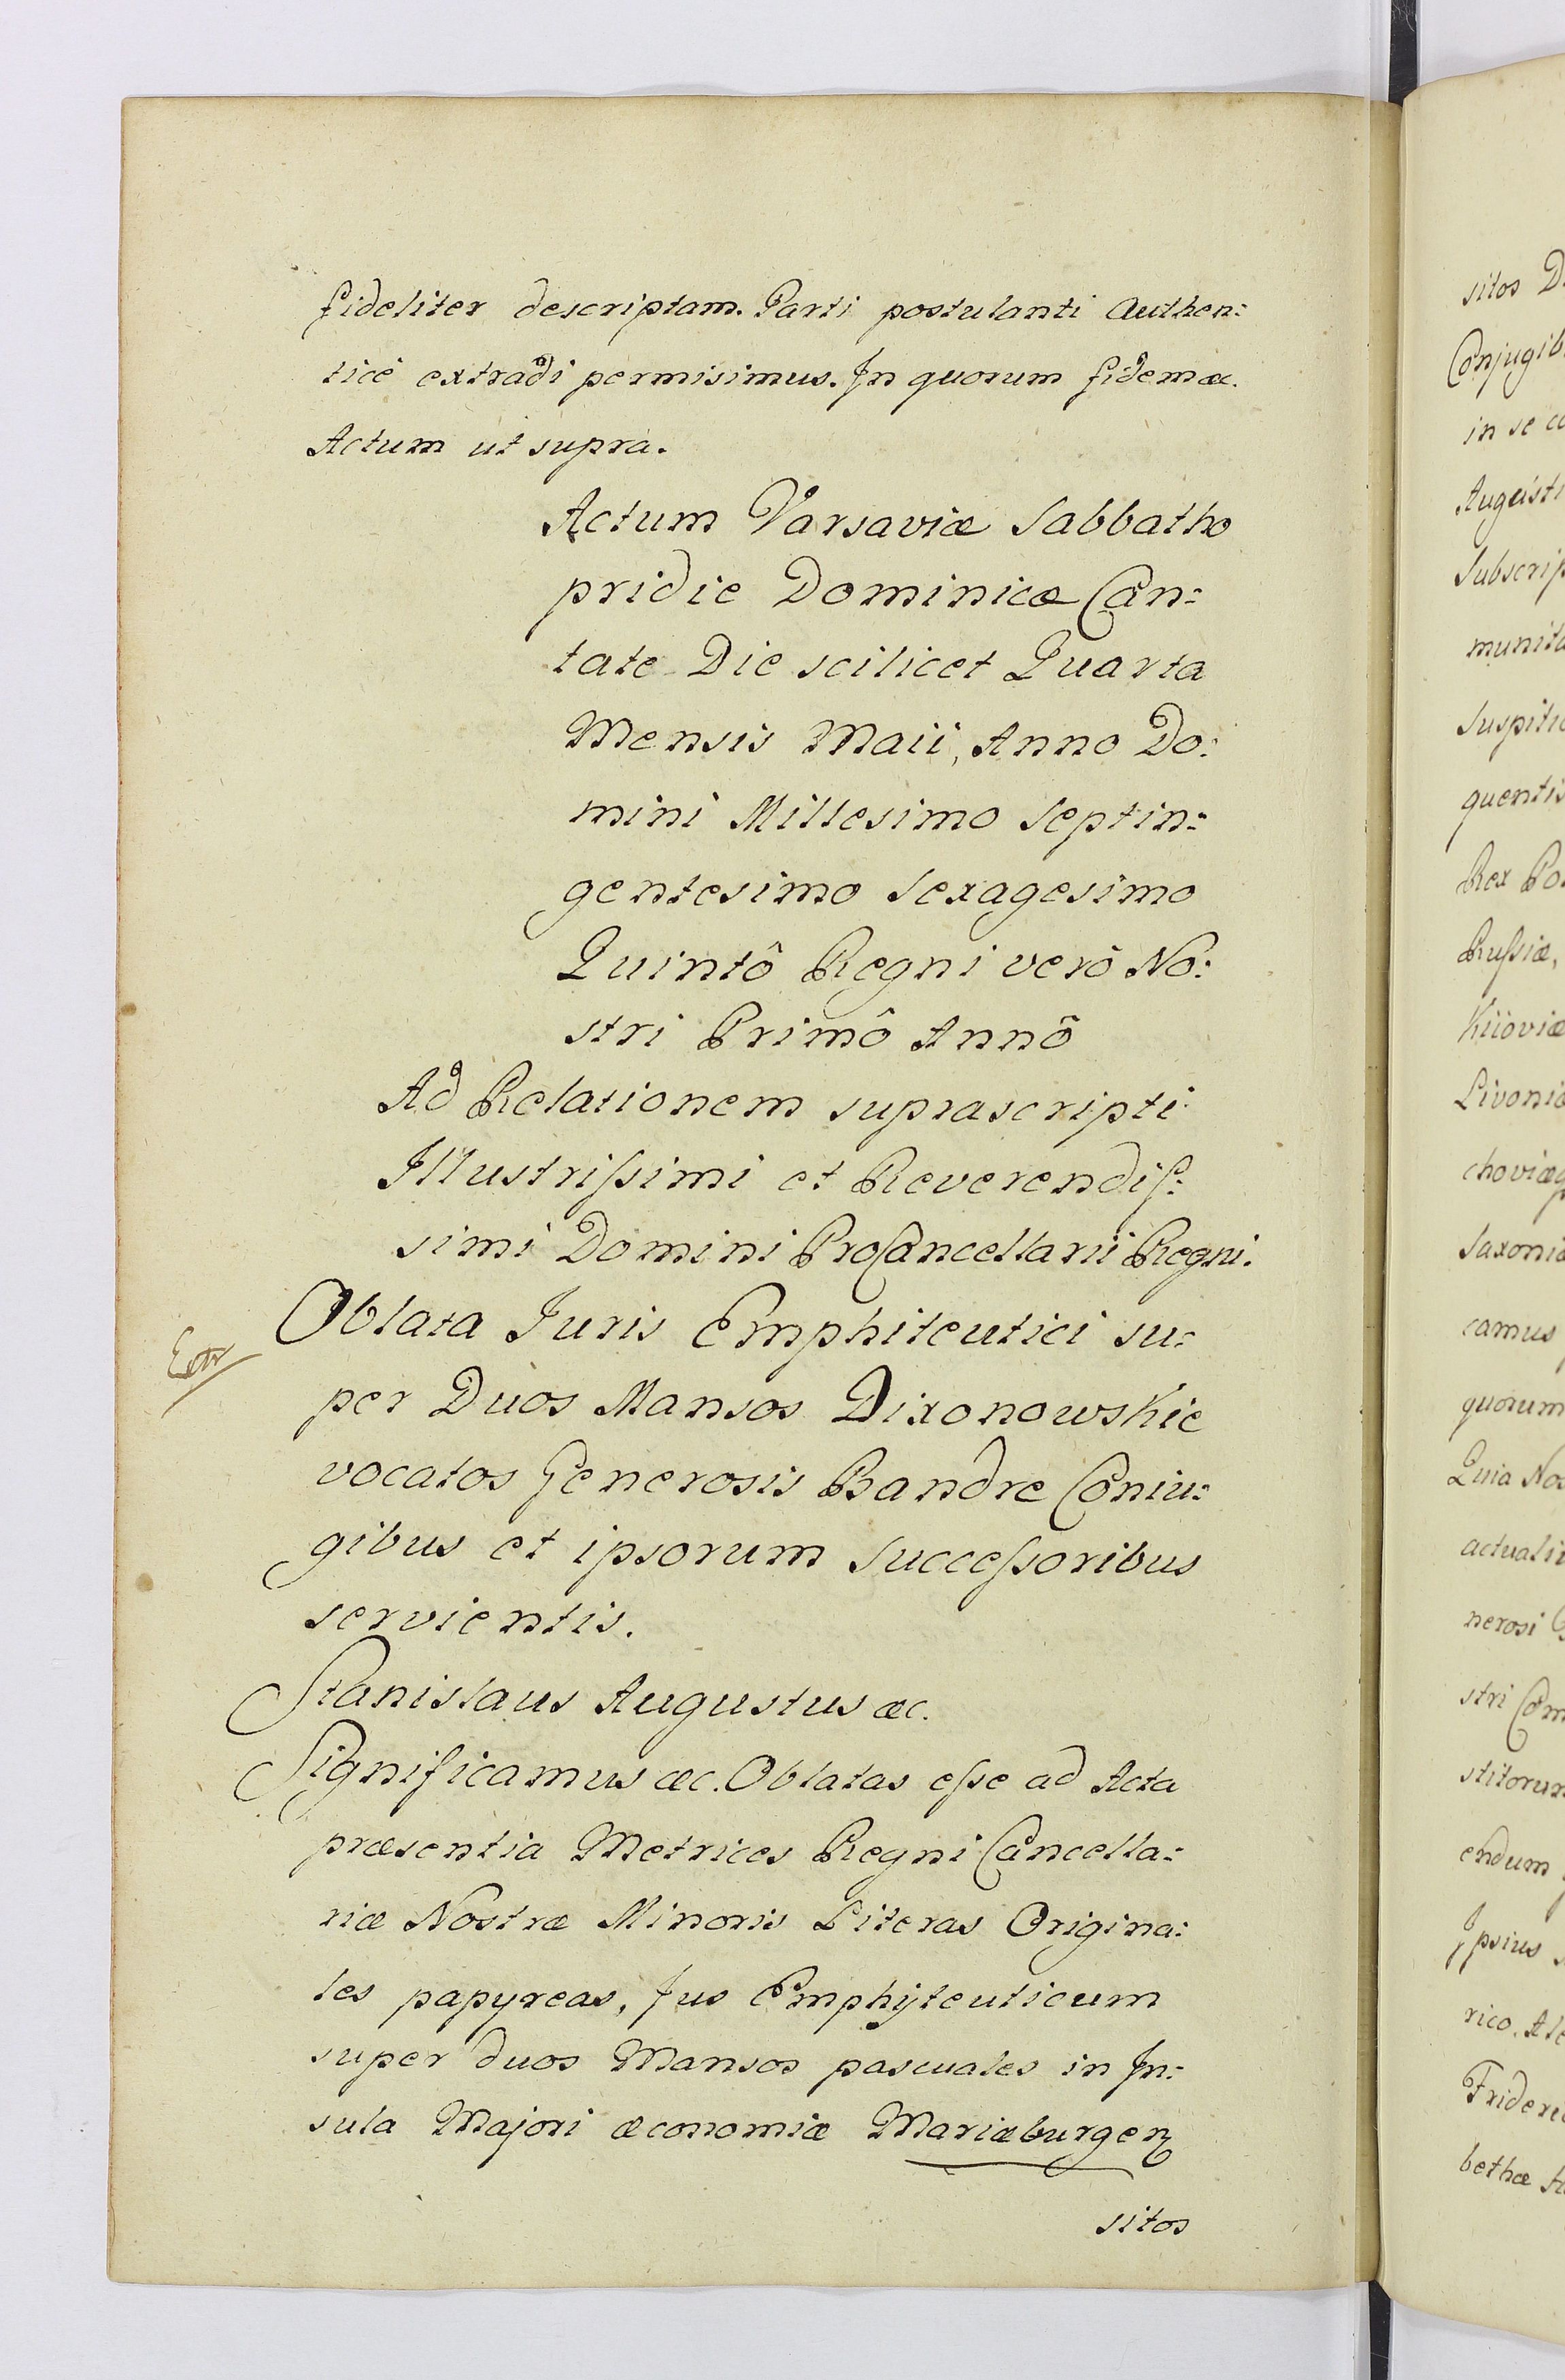 fideliter descriptam. Parti postulanti Authen:
ticè extradi permisimus. In quorum fidem æc.
Actum ut supra.
Actum Varsaviæ Sabbatho
pridie Dominicæ Can:
tate Die scilicet Quarta
Mensis Maii, Anno Do:
mini Millesimo Septin:
gentesimo Sexagesimo
Quintô Regni verò No:
stri Primô Annô
Ad Relationem suprascripti
Illustrißimi et Reverendiß:
simi Domini ProCancellarii Regni.
Oblata Juris Emphiteutici su:
per Duos Mansos Dixonowskie
vocatos Generosis Bandre Coniu:
gibus et ipsorum Succeßoribus
servientis.
Stanislaus Augustus æc.
Significamus æc. Oblatas eße ad Acta
præsentia Metrices Regni Cancella:
riæ Nostræ Minoris Literas Origina:
les papyreas, Jus Emphÿteuticum
super duos Mansos pascuales in In:
sula Majori œconomiæ Mariæburgen
sitos
sitos D
Conjugib
in se co
Augusti
Subscrip
munita
Suspitio
quentis
Rex Po
Rußiæ,
Kiioviæ
Livoniæ
choviæq
Saxoniæ
camus
quorum
Quia Nos
actuali
nerosi
stri Com
stitorum
endum
Ipsius
rico. Ale
Frideri
bethæ